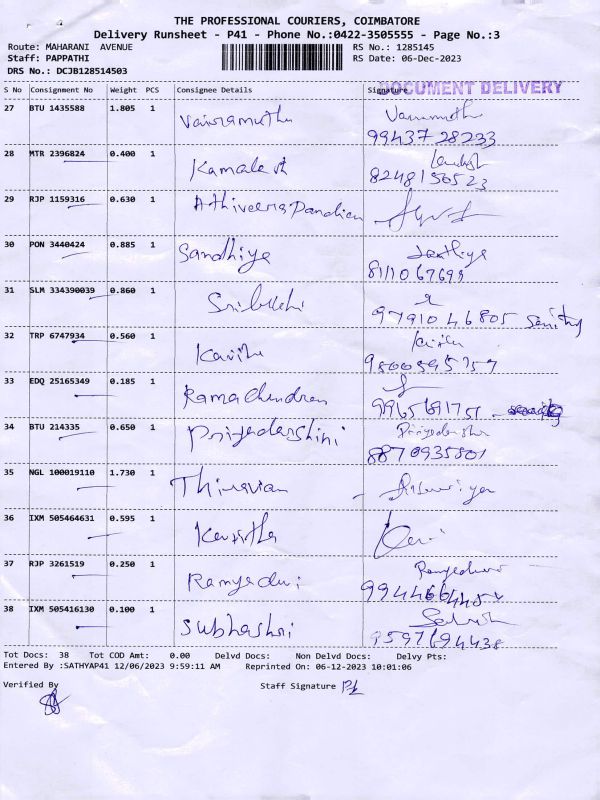 THE PROFESSIONAL COURIERS, COIMBATORE
Delivery Runsheet - P41 - Phone No.:0422-3505555 - Page No.:3
Route: MAHARANI AVENUE RS No.: 1285145
Staff: PAPPATHI RS Date: 06-Dec-2023
DRS No.: DCJB128514503
DOCUMENT DELIVERY
S No Consignment No Weight PCS Consignee Details Signature
27 BTU 1435588 1.805 1 Vairamuthu
9943728233
28 MTR 2396824 0.400 1 Kamalesh
8248150523
29 RJP 1159316 0.630 1 Athiveera Pandian
30 PON 3440424 0.885 1 Sandhiya
8111067699
31 SLM 334390039 0.860 1
9791046805
32 TRP 6747934 0.560 1 Kavitha
33 EDQ 25165349 0.185 1 Ramachendran
34 BTU 214335 0.650 1 Priyedarshini
8870935801
35 NGL 100019110 1.730 1
36 IXM 505464631 0.595 1 Kavitha
37 RJP 3261519 0.250 1 Ramyadevi
38 IXM 505416130 0.100 1 Subhashri
9597694438
Tot Docs: 38 Tot COD Amt: 0.00 Delvd Docs: Non Delvd Docs: Delvy Pts:
Entered By :SATHYAP41 12/06/2023 9:59:11 AM Reprinted On: 06-12-2023 10:01:06
Verified By Staff Signature